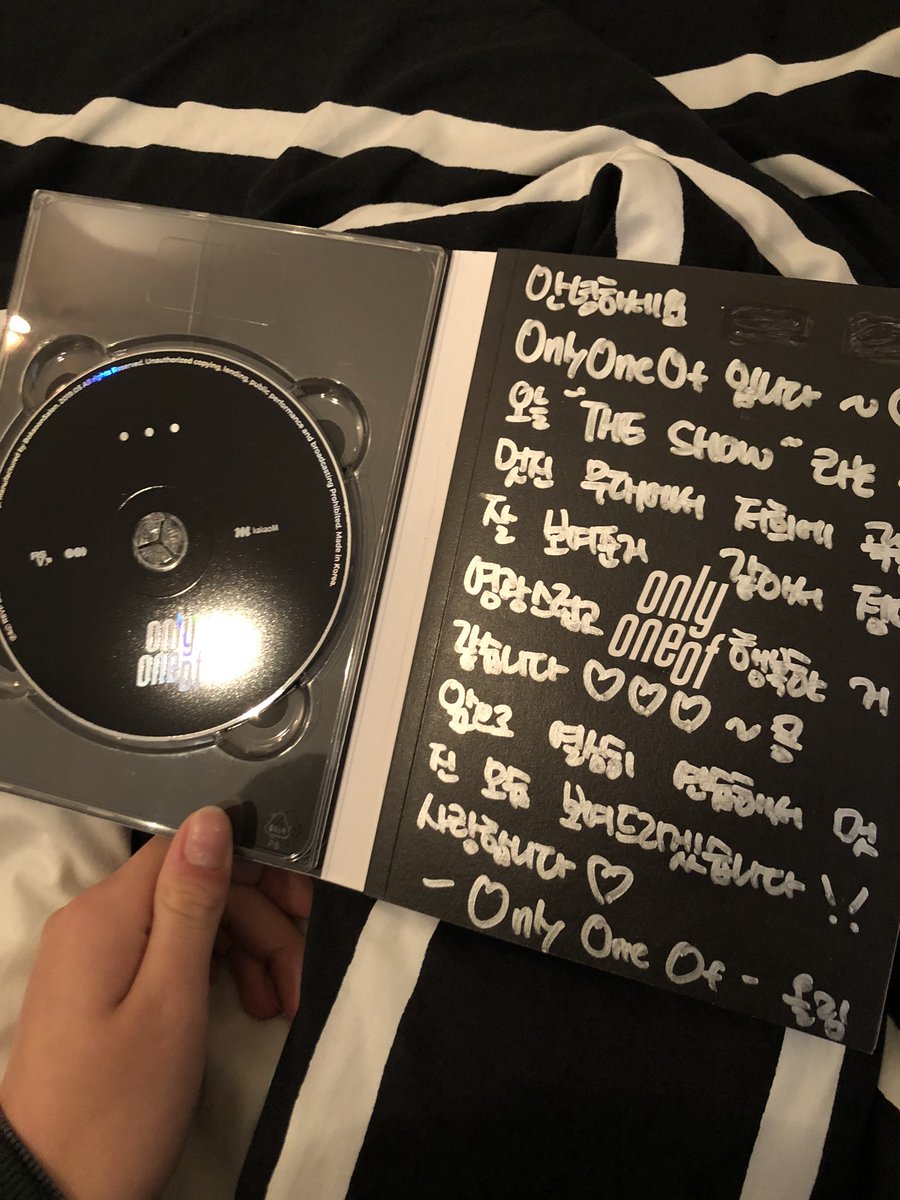 All rights Reserved. Unauthorized copying, lending, public performance and broadcasting Prohibited. Made in Korea.
kakaoM
only
oneof
PS
안녕하세요
OnlyOneOf 입니다 ~
오늘 "THE SHOW" 라는
멋진 무대에서 저희에 곡
잘 보여준거 같아서 정말
영광스럽고 행복한 거
only
oneof
같습니다 ♡♡♡ ~ 음
앞으로 열심히 연습해서 멋
진 모습 보여드리겠습니다 !!
사랑합니다 ♡
- Only One Of - 올림